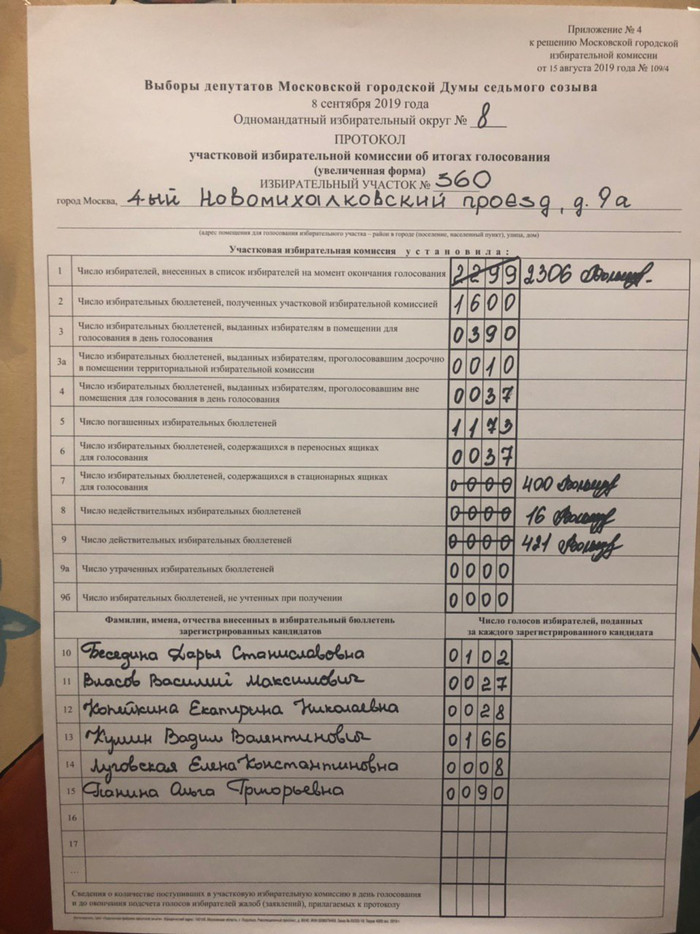 Приложение № 4
к решению Московской городской
избирательной комиссии
от 15 августа 2019 года № 109/4
Выборы депутатов Московской городской Думы седьмого созыва
8 сентября 2019 года
Одномандатный избирательный округ № 8
ПРОТОКОЛ
участковой избирательной комиссии об итогах голосования
(увеличенная форма)
ИЗБИРАТЕЛЬНЫЙ УЧАСТОК № 360
город Москва, 4ый Новомихалковский проезд, д. 9а
(адрес помещения для голосования избирательного участка – район в городе (поселение, населенный пункт), улица, дом)
Участковая избирательная комиссия установила:
1 Число избирателей, внесенных в список избирателей на момент окончания голосования 2299 2306
2 Число избирательных бюллетеней, полученных участковой избирательной комиссией 1600
3 Число избирательных бюллетеней, выданных избирателям в помещении для
голосования в день голосования 0390
3а Число избирательных бюллетеней, выданных избирателям, проголосовавшим досрочно
в помещении территориальной избирательной комиссии 0010
4 Число избирательных бюллетеней, выданных избирателям, проголосовавшим вне
помещения для голосования в день голосования 0037
5 Число погашенных избирательных бюллетеней 1173
6 Число избирательных бюллетеней, содержащихся в переносных ящиках
для голосования 0037
7 Число избирательных бюллетеней, содержащихся в стационарных ящиках
для голосования 0000 400
8 Число недействительных избирательных бюллетеней 0000 16
9 Число действительных избирательных бюллетеней 0000 421
9а Число утраченных избирательных бюллетеней 0000
9б Число избирательных бюллетеней, не учтенных при получении 0000
Фамилии, имена, отчества внесенных в избирательный бюллетень
зарегистрированных кандидатов
Число голосов избирателей, поданных
за каждого зарегистрированного кандидата
10 Беседина Дарья Станиславовна 0102
11 Власов Василий Максимович 0027
12 Копейкина Екатерина Николаевна 0028
13 Кумин Вадим Валентинович 0166
14 Луговская Елена Константиновна 0008
15 Панина Ольга Григорьевна 0090
16
17
...
Сведения о количестве поступивших в участковую избирательную комиссию в день голосования
и до окончания подсчета голосов избирателей жалоб (заявлений), прилагаемых к протоколу